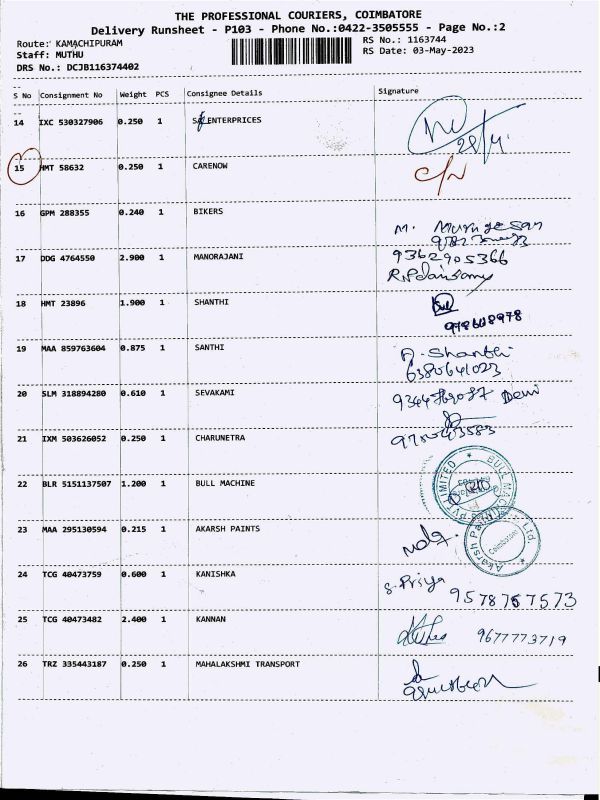 THE PROFESSIONAL COURIERS, COIMBATORE
Delivery Runsheet - P103 - Phone No.:0422-3505555 - Page No.:2
Route: KAMACHIPURAM RS No.: 1163744
Staff: MUTHU RS Date: 03-May-2023
DRS No.: DCJB116374402
S No Consignment No Weight PCS Consignee Details Signature
14 IXC 530327906 0.250 1 ENTERPRICES
28/4
15 HMT 58632 0.250 1 CARENOW
16 GPM 288355 0.240 1 BIKERS
M. Murugesan
17 DDG 4764550 2.900 1 MANORAJANI 9362905366
18 HMT 23896 1.900 1 SHANTHI
19 MAA 859763604 0.875 1 SANTHI A. Shanthi
6380641023
20 SLM 318894280 0.610 1 SEVAKAMI Devi
21 IXM 503626052 0.250 1 CHARUNETRA
22 BLR 5151137507 1.200 1 BULL MACHINE
BULL MACHINES PVT LIMITED
23 MAA 295130594 0.215 1 AKARSH PAINTS
Akarsh Paints Ltd.
Coimbatore
24 TCG 40473759 0.600 1 KANISHKA S. Priya
9578757573
25 TCG 40473482 2.400 1 KANNAN 9677773719
26 TRZ 335443187 0.250 1 MAHALAKSHMI TRANSPORT